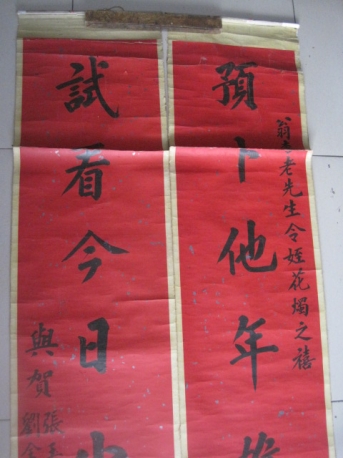 翁老先生令姪花燭之禧
預卜他年
試看今日
與賀
張
劉